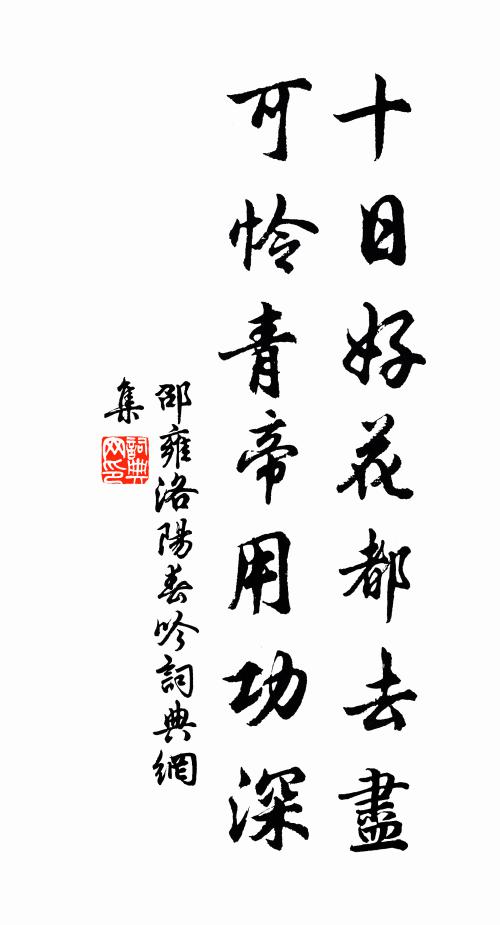 十日好花都去盡
可怜青帝用功深
邵雍洛陽春吟詞典網
集
詞典
网印